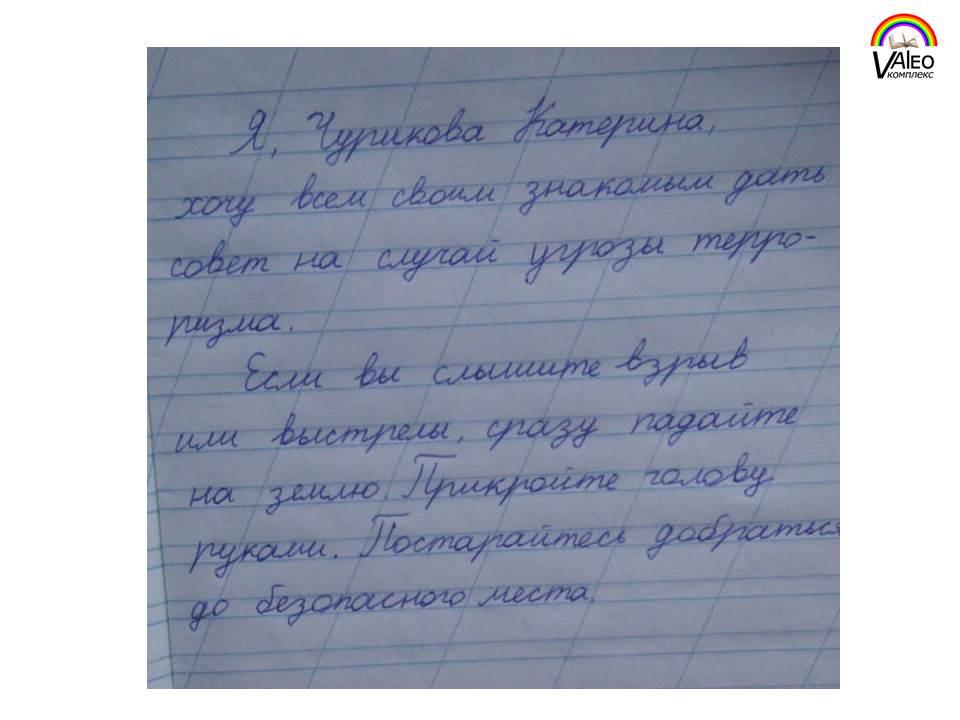 VALEO
КОМПЛЕКС
Я, Чурикова Катерина,
хочу всем своим знакомым дать
совет на случай угрозы терро-
ризма.
Если вы слышите взрыв
или выстрелы, сразу падайте
на землю Прикройте голову
руками. Постарайтесь добраться
до безопасного места.